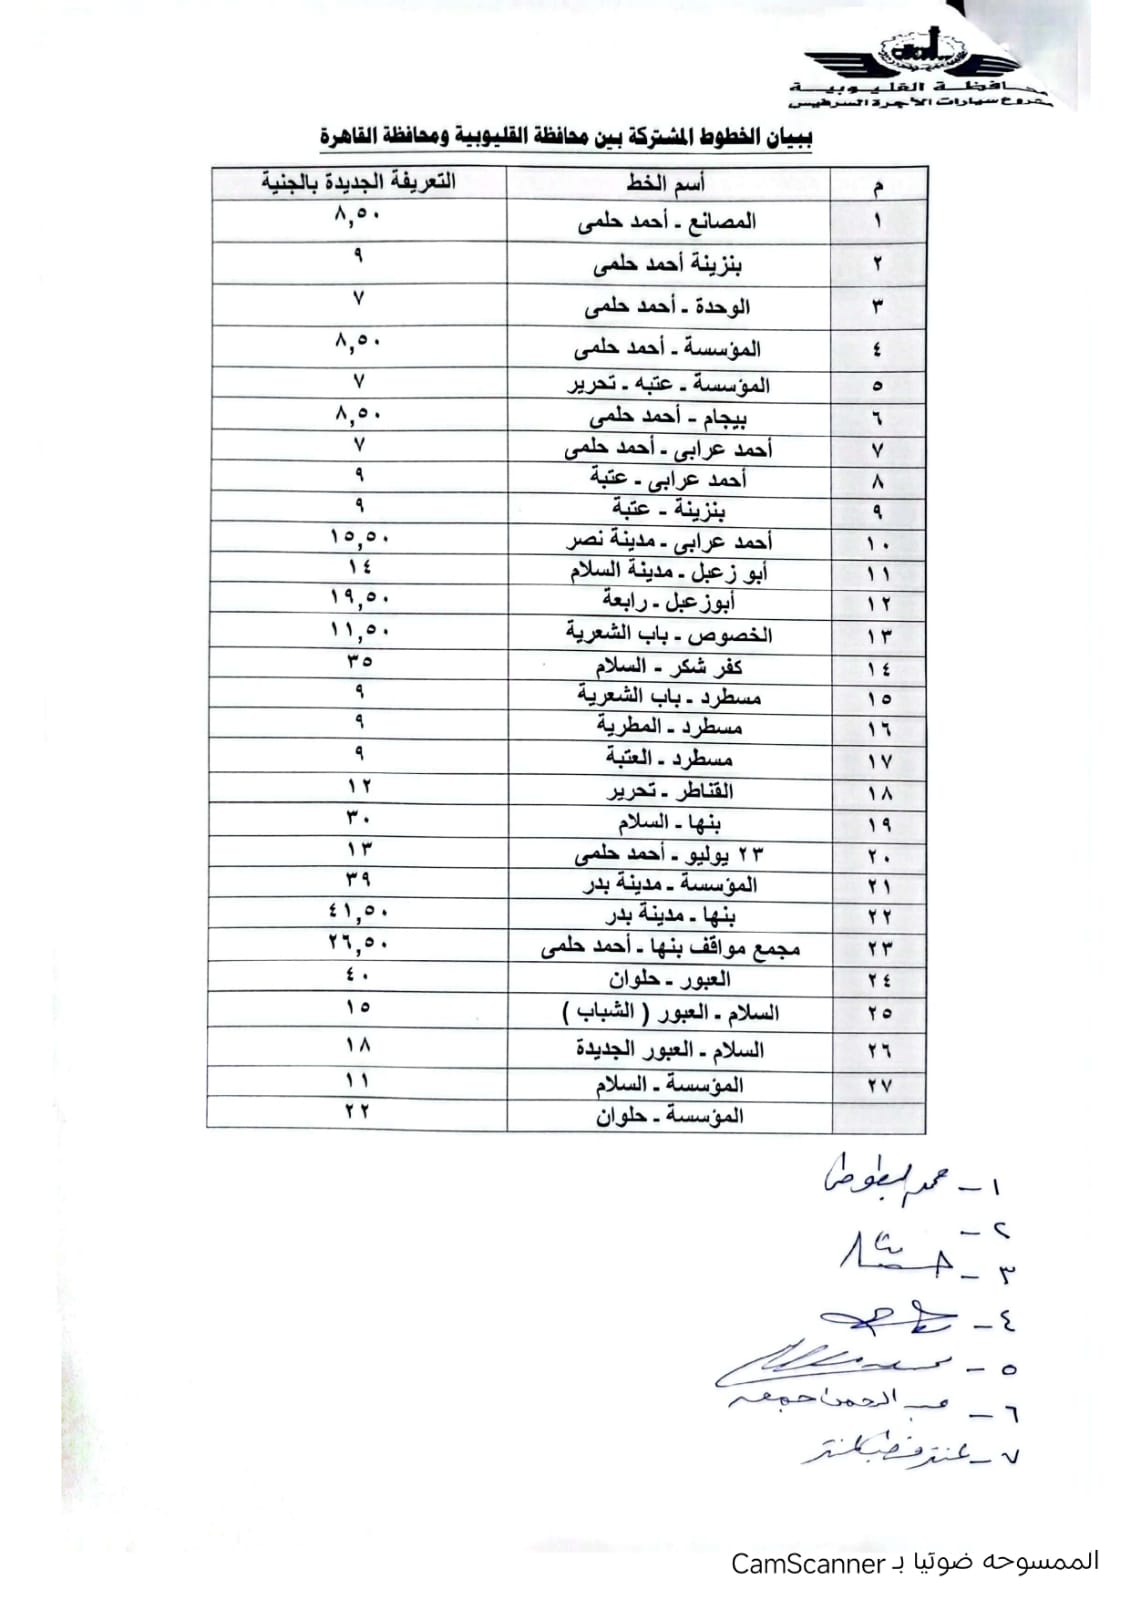 محافظة القليوبية
مشروع سيارات الأجرة السرفيس
ببيان الخطوط المشتركة بين محافظة القليوبية ومحافظة القاهرة
م أسم الخط التعريفة الجديدة بالجنية
١ المصانع - أحمد حلمى ٨,٥٠
٢ بنزينة أحمد حلمى ٩
٣ الوحدة - أحمد حلمى ٧
٤ المؤسسة - أحمد حلمى ٨,٥٠
٥ المؤسسة - عتبه - تحرير ٧
٦ بيجام - أحمد حلمى ٨,٥٠
٧ أحمد عرابى - أحمد حلمى ٧
٨ أحمد عرابى - عتبة ٩
٩ بنزينة - عتبة ٩
١٠ أحمد عرابى - مدينة نصر ١٥,٥٠
١١ أبو زعبل - مدينة السلام ١٤
١٢ أبوزعبل - رابعة ١٩,٥٠
١٣ الخصوص - باب الشعرية ١١,٥٠
١٤ كفر شكر - السلام ٣٥
١٥ مسطرد - باب الشعرية ٩
١٦ مسطرد - المطرية ٩
١٧ مسطرد - العتبة ٩
١٨ القناطر - تحرير ١٢
١٩ بنها - السلام ٣٠
٢٠ ٢٣ يوليو - أحمد حلمى ١٣
٢١ المؤسسة - مدينة بدر ٣٩
٢٢ بنها - مدينة بدر ٤١,٥٠
٢٣ مجمع مواقف بنها - أحمد حلمى ٢٦,٥٠
٢٤ العبور - حلوان ٤٠
٢٥ السلام - العبور ( الشباب ) ١٥
٢٦ السلام - العبور الجديدة ١٨
٢٧ المؤسسة - السلام ١١
المؤسسة - حلوان ٢٢
١ - محمد
٢ -
٣ -
٤ -
٥ -
٦ - عبد الرحمن جمعه
٧ -
الممسوحه ضوئيا بـ CamScanner